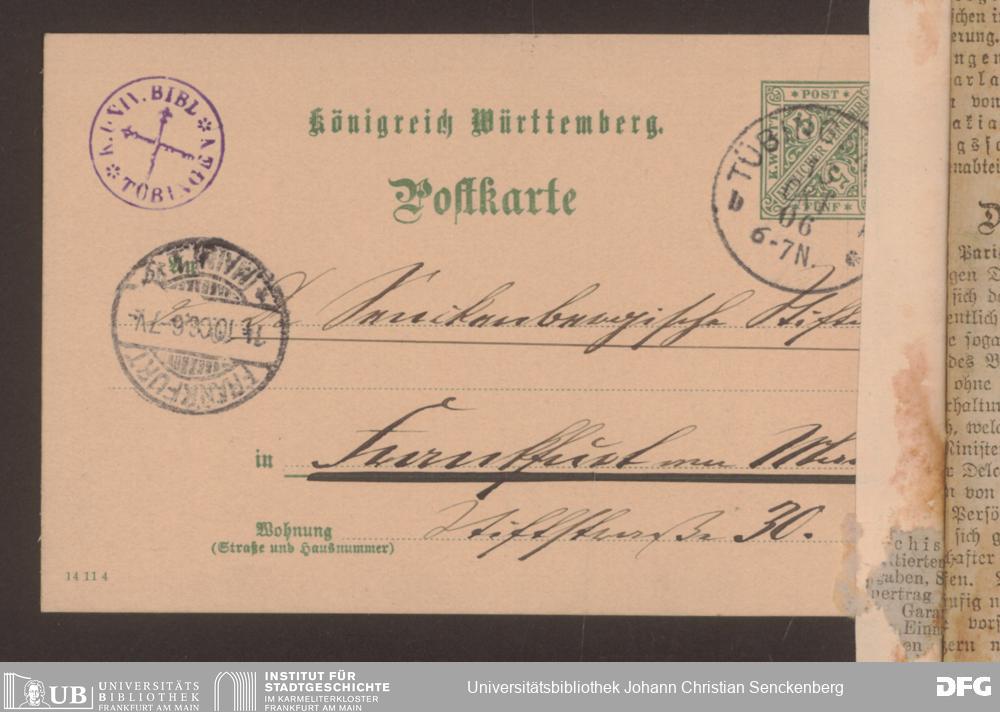 K. UNIV. BIBL.
TÜBINGEN
Königreich Württemberg.
Postkarte
POST
FÜNF
TÜBIN
b
06
6-7N.
An
FRANKFURT
11.10.06.6-7V.
Senckenbergische Stift
in Frankfurt am Main
Wohnung
(Straße und Hausnummer)
Stiftstraße 30.
14 11 4
schen i
erung.
ngen
arla
von
akia
gsf
nabtei
D
Pari
gen D
sich d
entlich
e soga
des B
ohne
chaltun
h, welc
Ministe
r Delc
n von
Persö
sich g
after
en.
ufig n
vors
ern n
chis
tierten
gaben, 8
vertrag
Gara
Einn
en
UB
UNIVERSITÄTS
BIBLIOTHEK
FRANKFURT AM MAIN
INSTITUT FÜR
STADTGESCHICHTE
IM KARMELITERKLOSTER
FRANKFURT AM MAIN
Universitätsbibliothek Johann Christian Senckenberg
DFG